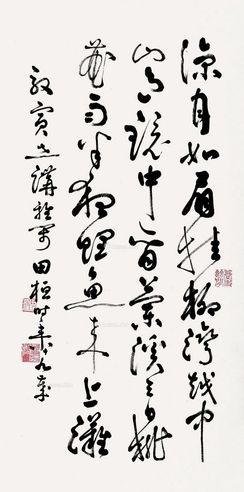 涼月如眉挂柳灣越中
山色鏡中看蘭溪三日桃
花雨半夜鯉魚來上灘
賓 講 田桓時年